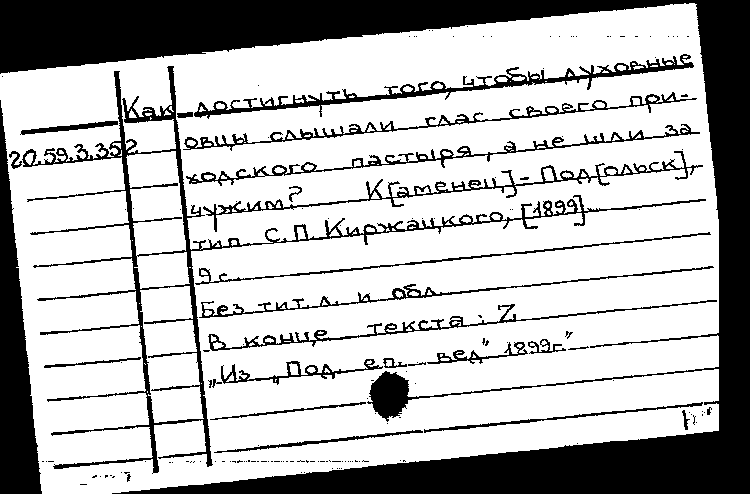 Как достигнуть того, чтобы духовные
20.59.3.352 овцы слышали глас своего при-
ходского пастыря, а не шли за
чужим? К[аменец]-Под[ольск],
тип. С.П. Киржацкого, [1899].
9 с.
Без тит. л. и обл.
В конце текста: Z.
„Из „Под. еп. вед" 1899г."